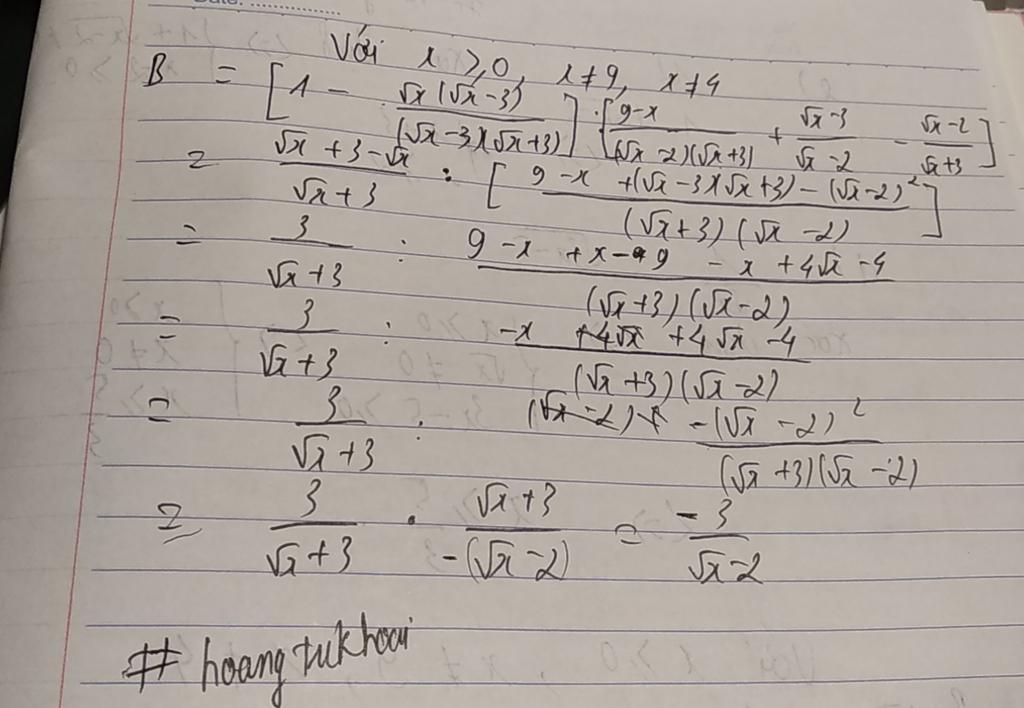 Date: ..................
Với x ≥ 0, x ≠ 9, x ≠ 4
B = [1 - √x(√x-3)/(√x-3)(√x+3)] : [9-x/(√x-2)(√x+3) + √x-3/√x-2 - √x-2/√x+3]
= √x+3-√x/√x+3 : [9-x+(√x-3)(√x+3)-(√x-2)²/(√x+3)(√x-2)]
= 3/√x+3 : 9-x+x-9-x+4√x-4/(√x+3)(√x-2)
= 3/√x+3 : -x+4√x+4√x-4/(√x+3)(√x-2)
= 3/√x+3 : (√x-2) -(√x-2)²/(√x+3)(√x-2)
= 3/√x+3 . √x+3/-(√x-2) = -3/√x-2
# hoangtukhoai